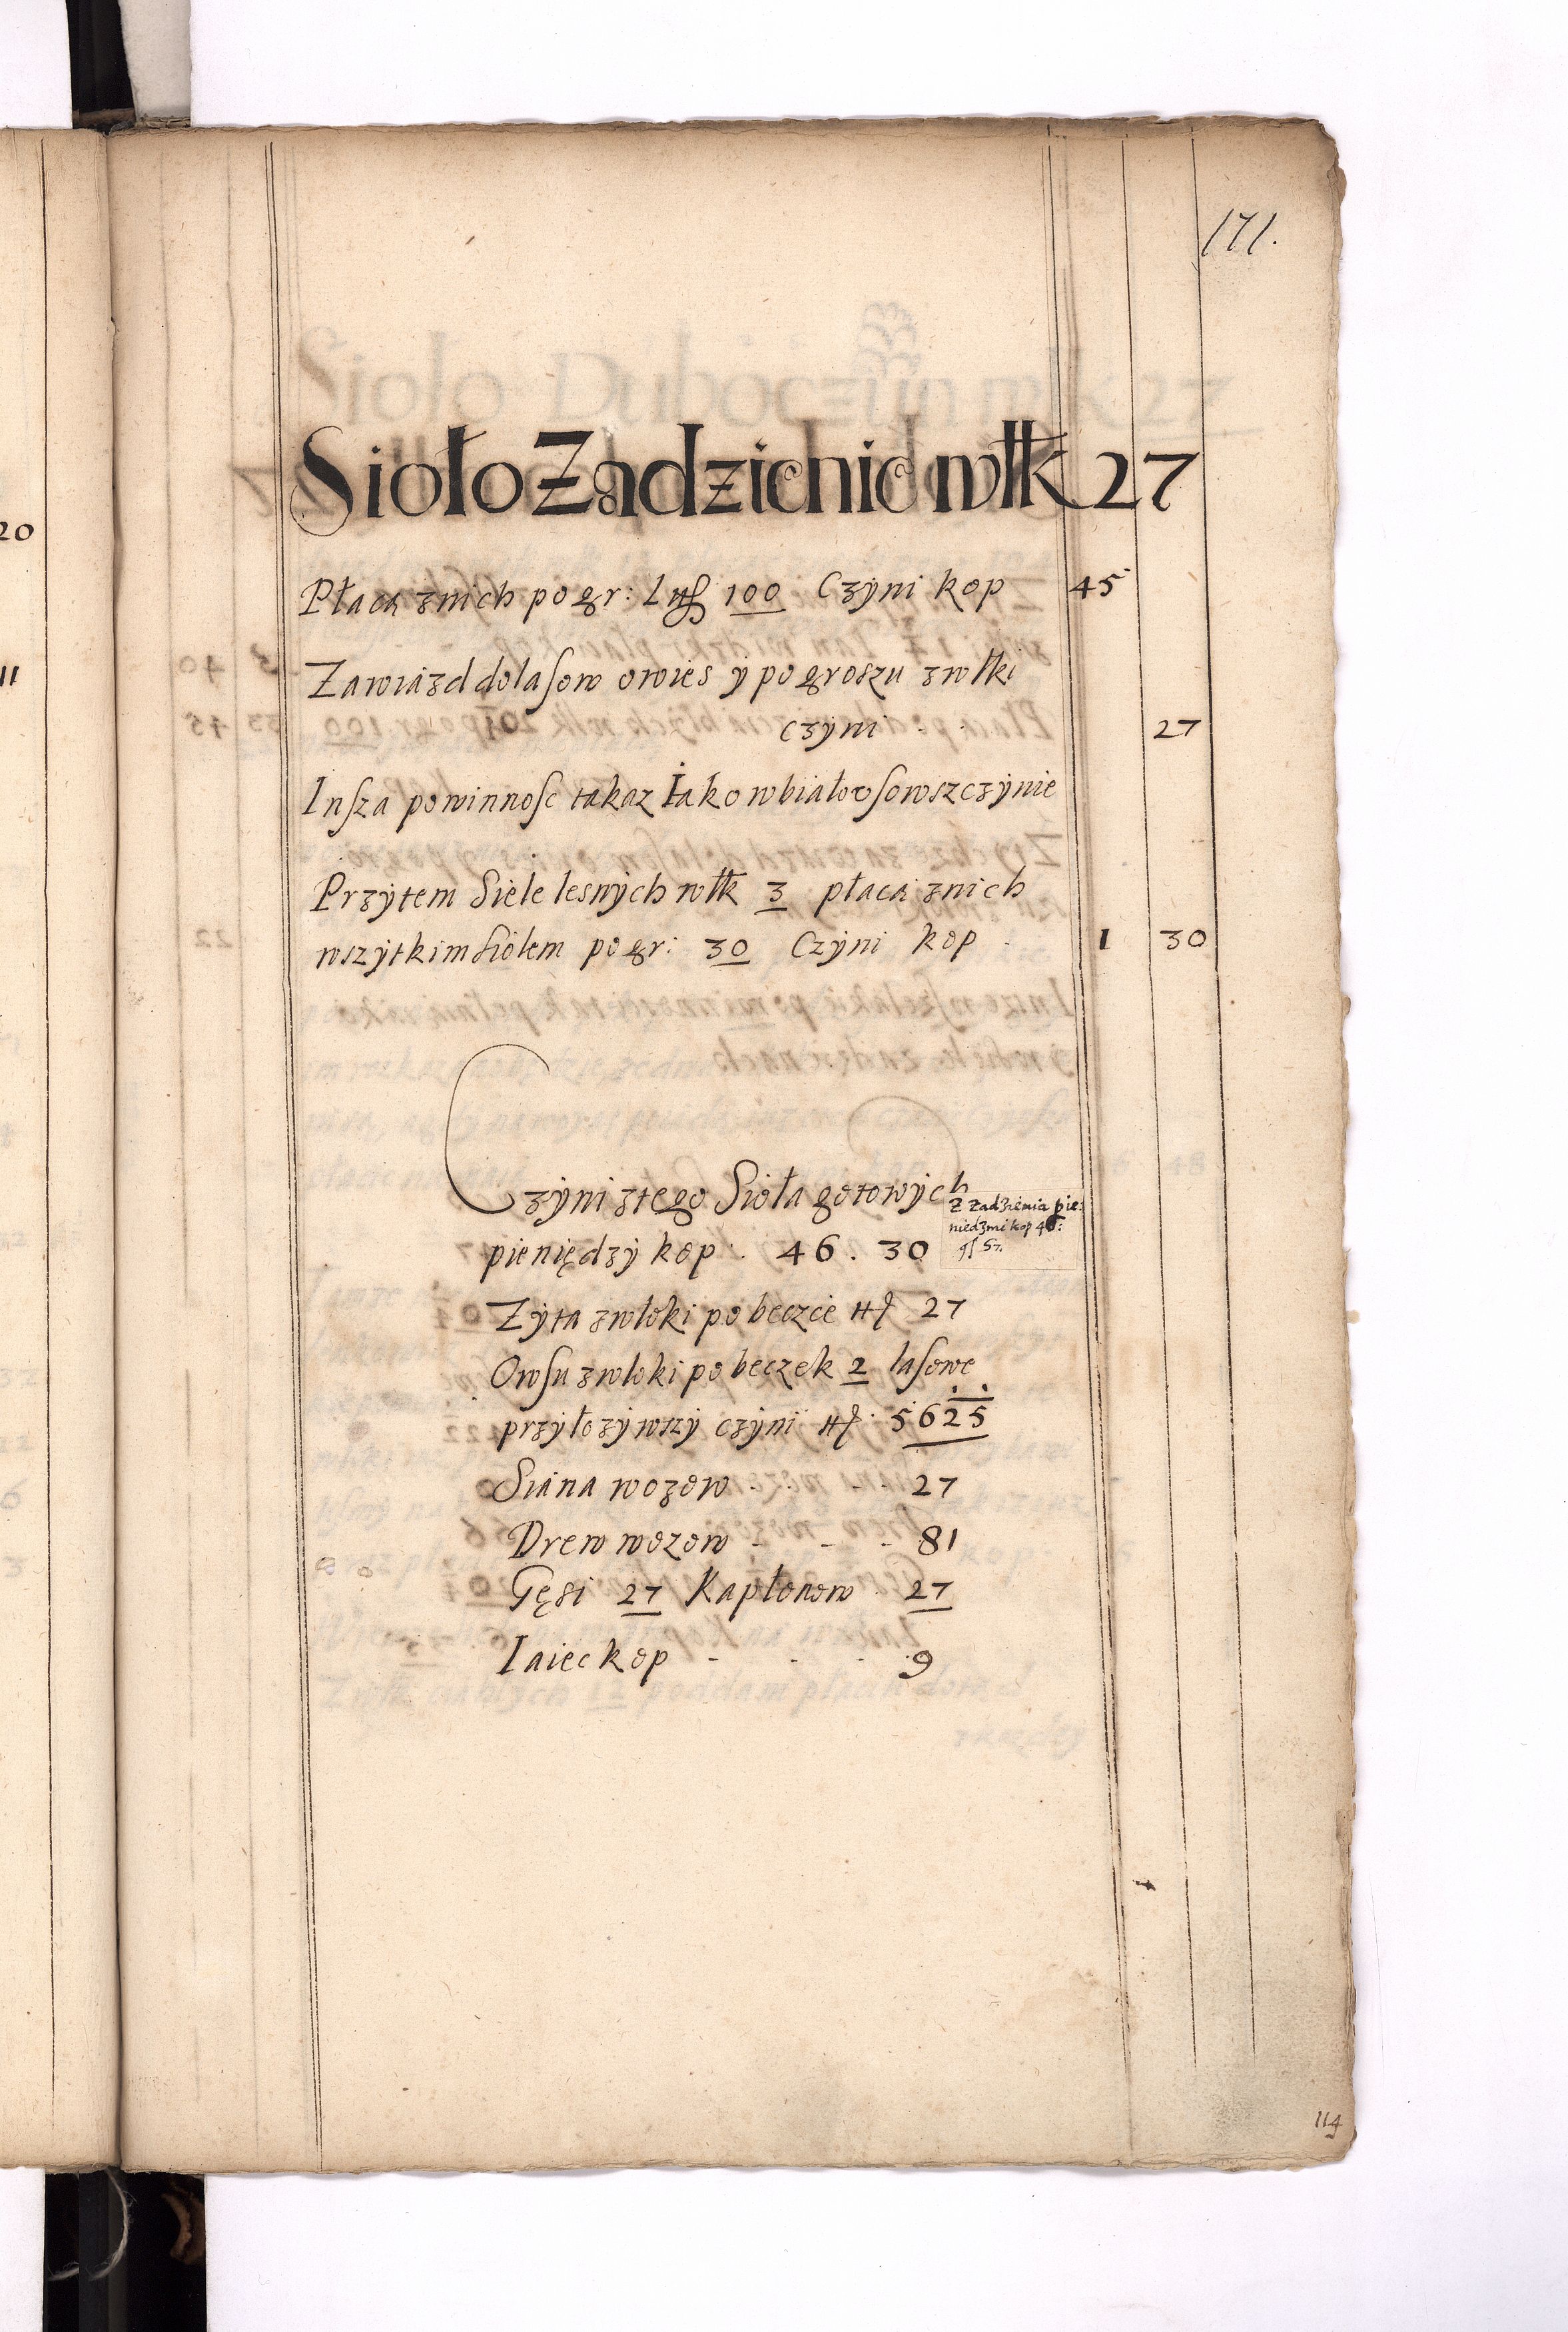 171.
Sioło Zadzienic włk 27
Płacą znich po gr: Lit 100 Czyni kop 45
Zawiazd dolasow owies y po groszu zwłki
czyni 27
Insza powinnosc takaz Jako wbiałorosowszczynie
Przytem Siele lesnych włk 3 płacą znich
wszytkim siołem po gr: 30 Czyni kop 1 30
Czyni ztego Sioła gotowych
pieniędzy kop 46. 30
Z Zadzienia pie:
niedzmi kop
Zyta zwłoki po beczce 27
Owsu zwłoki po beczek 2 lasowe
przyłozywszy czyni 5625
Siana wozow 27
Drew wozow 81
Gęsi 27 Kapłonow 27
Jaiec kop 9
114
20
11